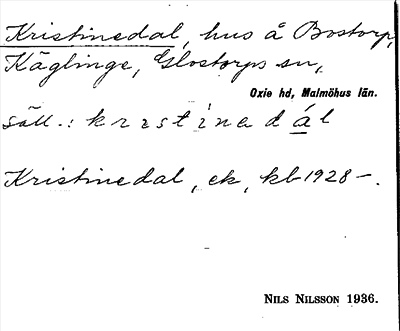 Kristinedal, hus å Bostorp,
Käglinge, Glostorps sn,
Oxie hd, Malmöhus län.
säll.: kristinedál
Kristinedal, ek, kb 1928 –.
NILS NILSSON 1936.